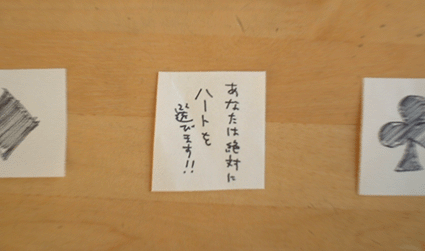 あなたは絶対に
ハートを
選びます!!